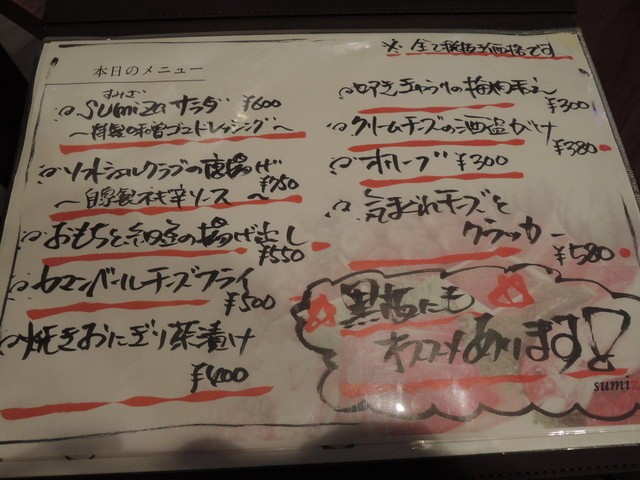 ※全て税抜き価格です
本日のメニュー
すみざ
Sumizaサラダ ¥600
～特製の和風ゴマドレッシング～
ソフトシェルクラブの唐揚げ ¥750
～自家製ネギ辛ソース～
おもちと納豆の揚げ出し ¥550
カマンベールチーズフライ ¥500
焼きおにぎり茶漬け ¥400
叩ききゅうりの梅肉和え ¥300
クリームチーズの酒盗がけ ¥380
オリーブ ¥300
気まぐれチーズと
クラッカー ¥580
黒板にも
オススメあります!